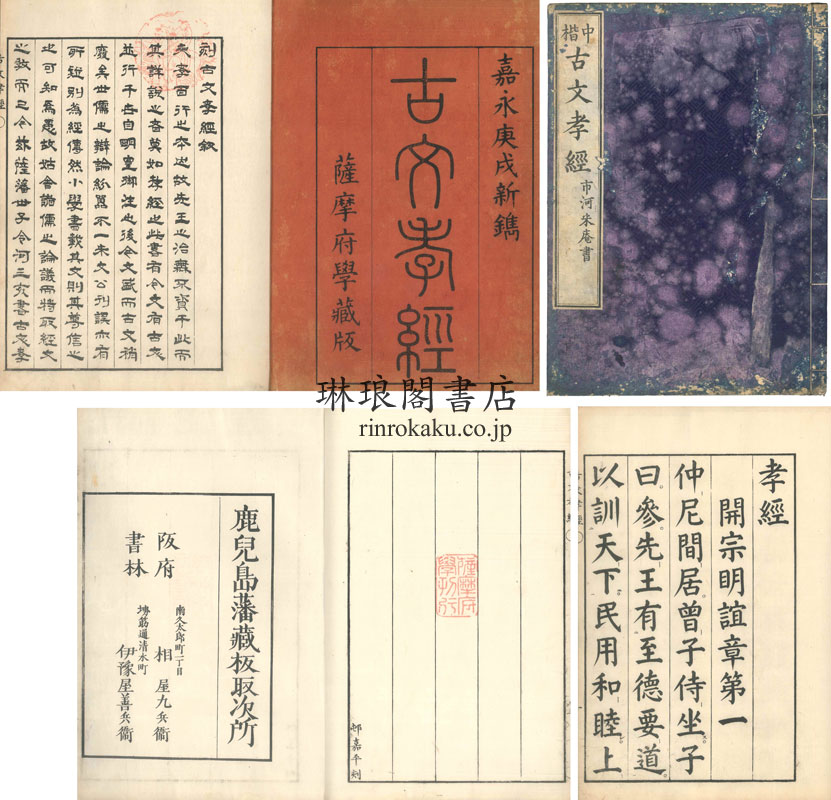 刻古文孝經叙
夫孝百行之本也故先王之治無不資于此而
其詳說之者莫如孝經也此書有今文有古文
並行于古自明皇御注之後今文盛而古文稍
廢矣世儒之辯論紛不一朱文公刊誤亦有
所說別為經傳然小學書載其文則其尊信之
也可知焉愚故姑舍諸儒之論議而特取經文
之教而已今茲薩藩世子令河三亥書古文孝
嘉永庚戌新鐫
古文孝經
薩摩府學藏版
中楷
古文孝經
市河米庵書
琳琅閣書店
rinrokaku.co.jp
鹿兒島藩藏板取次所
阪府
書林
南久太郎町二丁目
相屋九兵衞
堺筋通清水町
伊豫屋善兵衞
薩摩府
學刊行
邨嘉平刻
孝經
開宗明誼章第一
仲尼間居曾子侍坐子
曰參先王有至德要道
以訓天下民用和睦上